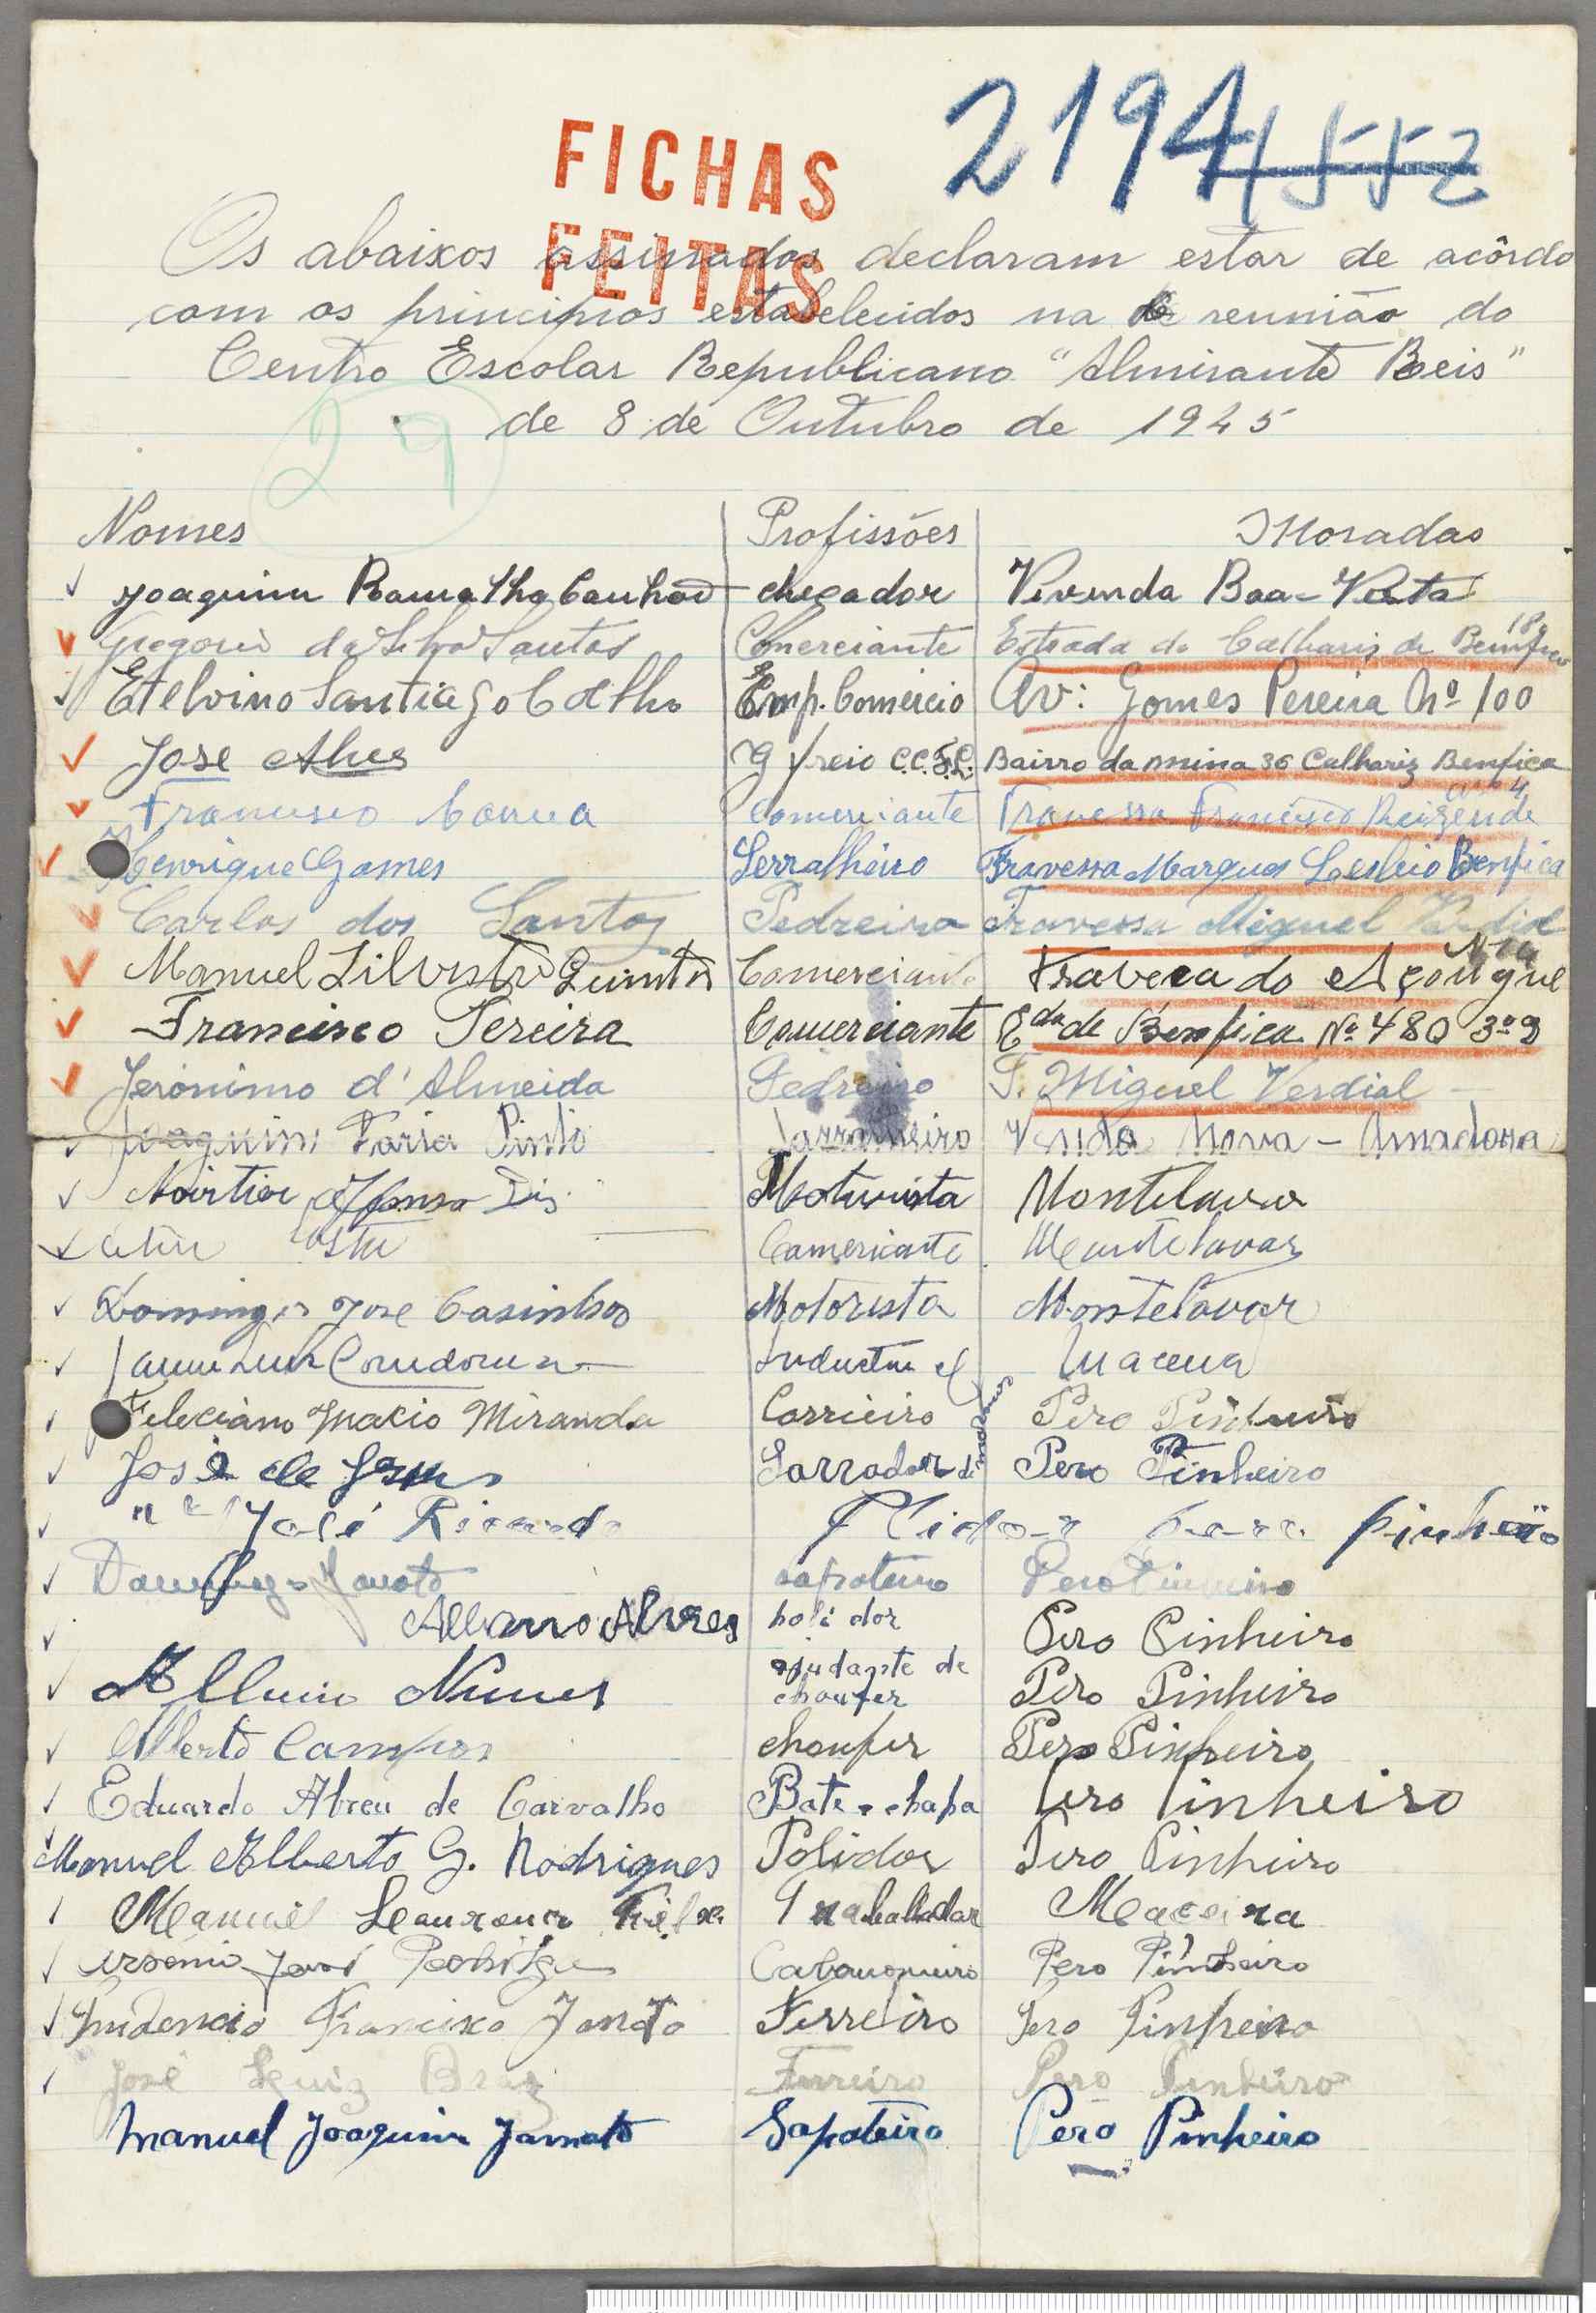 2194
1552
FICHAS
FEITAS
Os abaixos assinados declaram estar de acôrdo
com os principios estabelecidos na reunião do
Centro Escolar Republicano "Almirante Reis"
de 8 de Outubro de 1945
29
Nomes Profissões Moradas
Joaquim Ramalho chegador Vivenda Boa-Vista
Gregorio da Silva Santos Comerciante Estrada do Calhariz de Benfica
Etelvino Santiago Coelho Emp. Comércio Av: Gomes Pereira Nº 100
José Alves G freio C.C.F.L. Bairro da mina 36 Calhariz Benfica
Francisco Comerciante Travessa Francisco
Henrique Gomes Serralheiro Travessa Marques Benfica
Carlos dos Santos Pedreiro Travessa Miguel Verdial
Manuel Silvestre Comerciante Traveca do Açougue
Francisco Pereira Comerciante Eda de Benfica Nº 480 3º
Jerónimo d'Almeida Pedreiro T. Miguel Verdial
Joaquim Faria Pinto Venda Nova - Amadora
Afonso Moturista Montelavar
Comerciante Montelavar
Domingos José Casinhas Motorista Montelavar
Feliciano Inacio Miranda Corrieiro Pero Pinheiro
José de Jesus Sarrador de marmores Pero Pinheiro
José Ricardo pinheiro
Sapateiro Pero Pinheiro
Alvaro Alves polidor Pero Pinheiro
Nunes ajudante de choufer Pero Pinheiro
Alberto Campos choufer Pero Pinheiro
Eduardo Abreu de Carvalho Bate-chapa Pero Pinheiro
Manuel Alberto G. Rodrigues Polidor Pero Pinheiro
Manuel Trabalhador Maceira
José Pero Pinheiro
Prudencio Francisco Janota Ferreiro Pero Pinheiro
José Luiz Braz Ferreiro Pero Pinheiro
Manuel Joaquim Sapateiro Pero Pinheiro